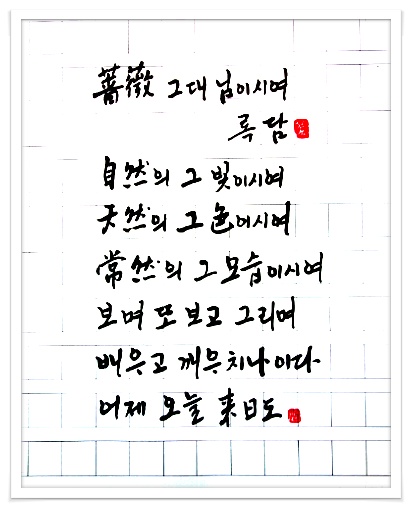 薔薇 그대 님이시여
록담
自然의 그 빛이시여
天然의 그 色이시여
常然의 그 모습이시여
보며 또 보고 그리며
배우고 깨우치나이다
어제 오늘 来日도